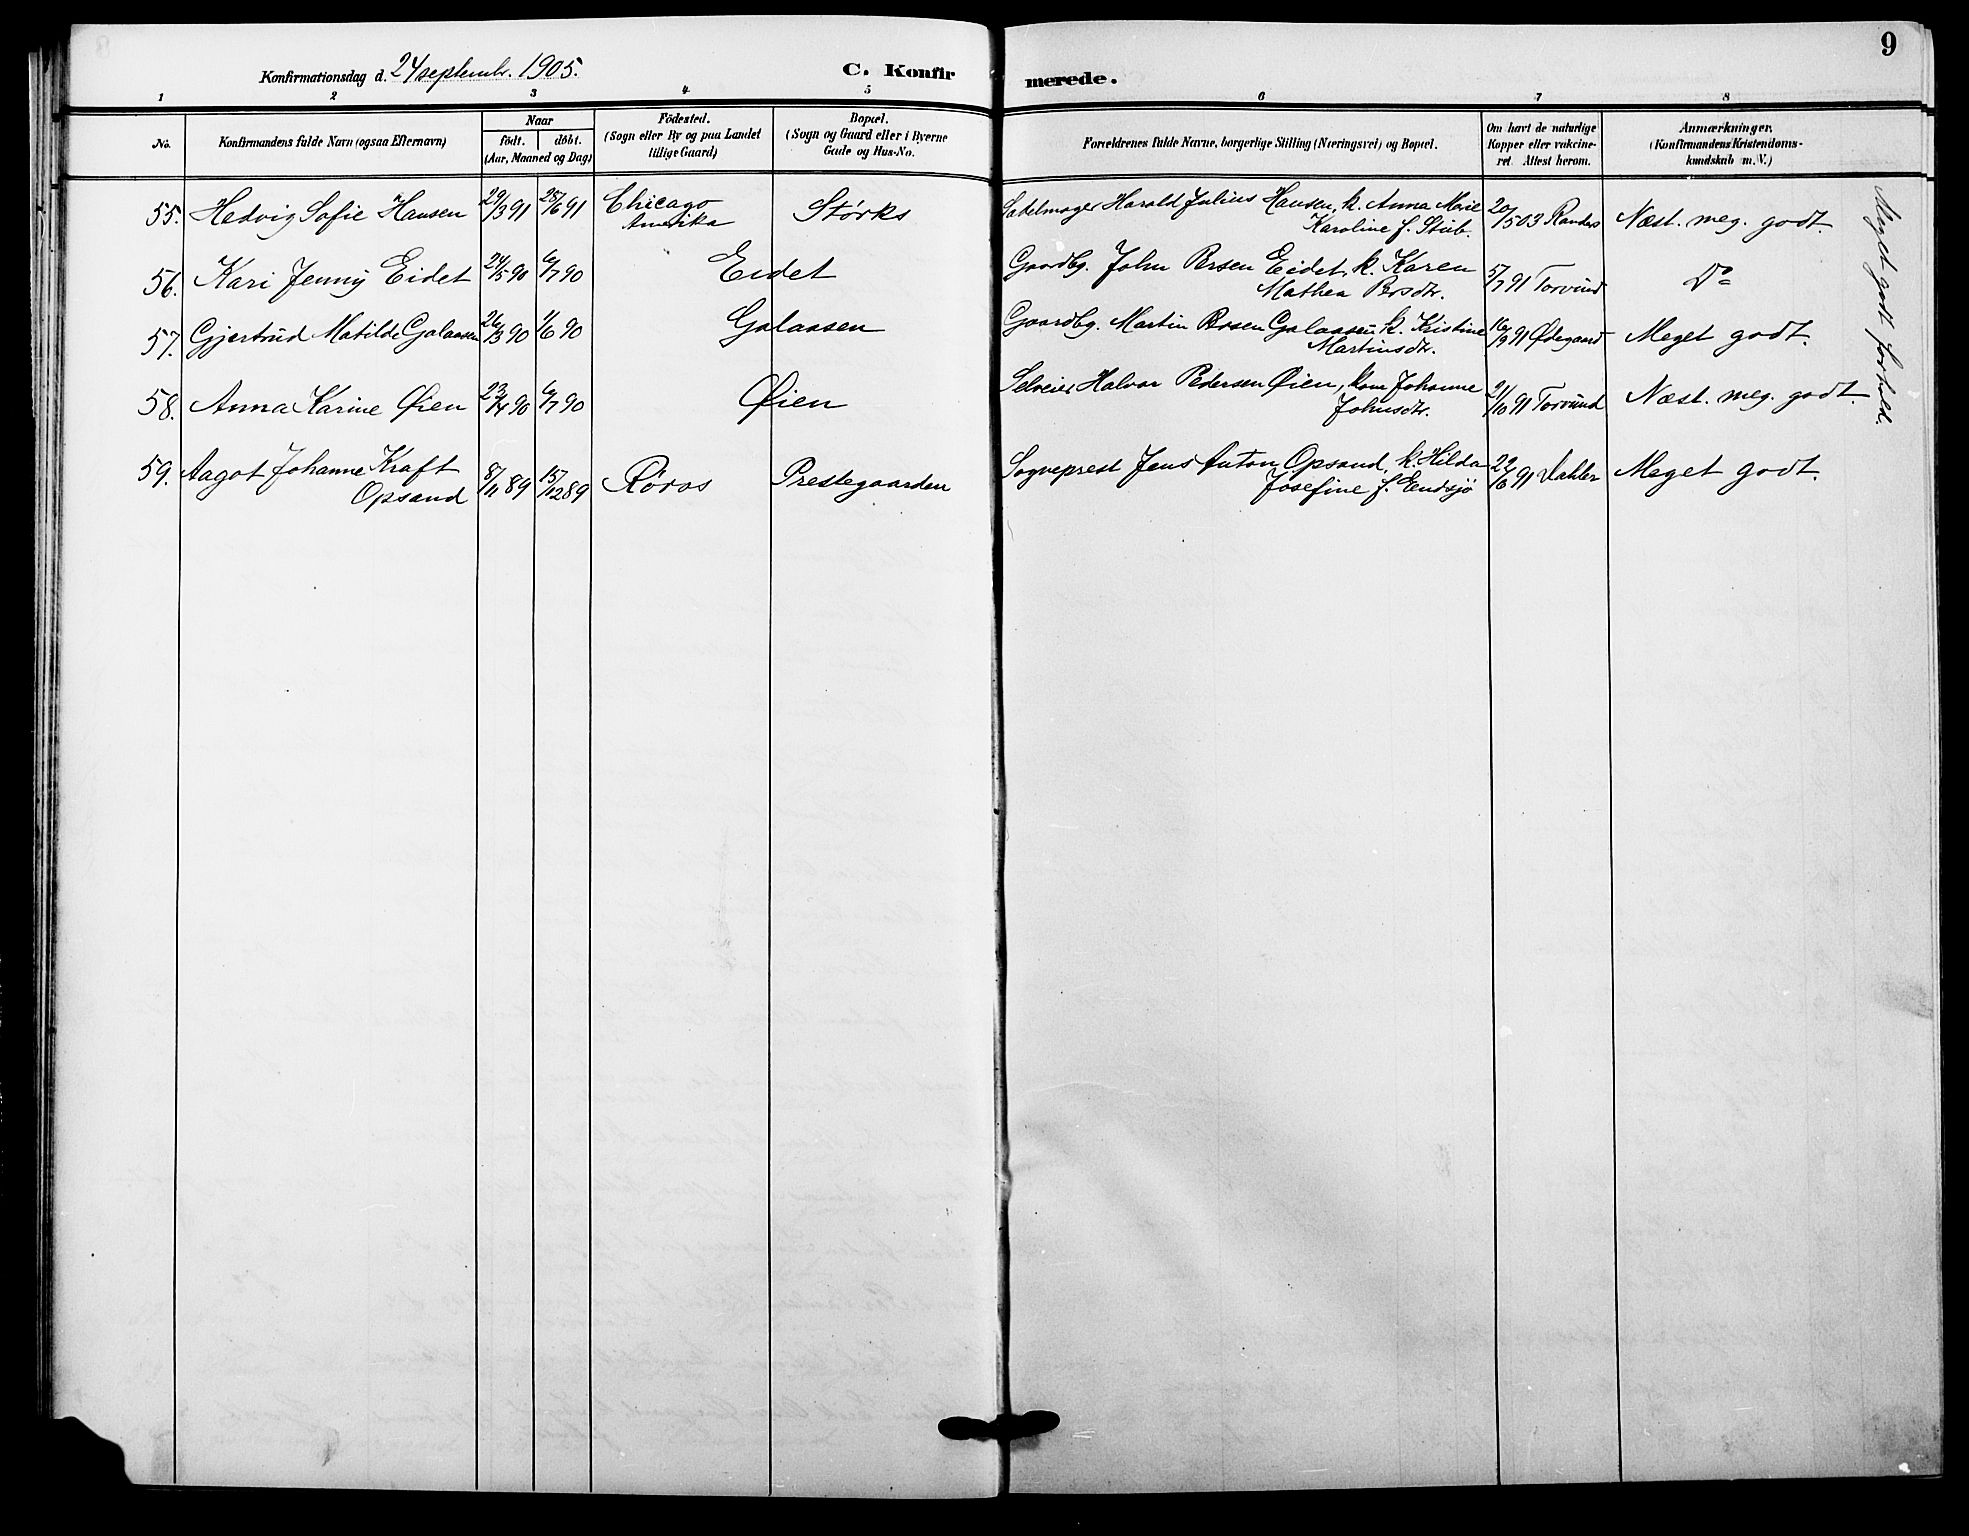 Konfirmationsdag d. 24 septembr. 1905.
C. Konfir
merede.
9
1 2 3 4 5 6 7 8
No.
Konfirmandens fulde Navn (ogsaa Efternavn)
Naar
födt. döbt.
(Aar, Maaned og Dag)
Födested.
(Sogn eller By og paa Landet
tillige Gaard)
Bopæl.
(Sogn og Gaard eller i Byerne
Gade og Hus-No.
Forældrenes fulde Navne, borgerlige Stilling (Næringsvei) og Bopæl.
Om havt de naturlige
Kopper eller vakcine-
ret. Attest herom.
Anmærkninger.
(Konfirmandens Kristendoms-
kundskab m. V.)
55. Hedvig Sofie Hansen 29/3 91 25/6 91 Chicago Størks Sadelmager Harald Julius Hansen, k. Anna Marie 20/5 03 Randers Næst. meg. godt.
Amerika Karoline f. Stub.
56. Kari Jenny Eidet 24/5 90 6/7 90 Eidet Gaardbg. John Persen Eidet, k. Karen 5/7 91 Torvund Do
Mathea Persdtr.
57. Gjertrud Matilde Galaasen 26/3 90 1/6 90 Galaasen Gaardbg. Martin Persen Galaasen, k. Kristine 16/9 91 Ødegaard Meget godt.
Martinsdtr.
58. Anna Karine Øien 23/4 90 6/7 90 Øien Selveier Halvor Pedersen Øien, kone Johanne 21/10 91 Torvund Næst. meg. godt.
Johnsdtr.
59. Aagot Johanne Kraft 8/11 89 15/12 89 Røros Prestegaarden Sogneprest Jens Anton Opsand, k. Hilda 22/6 91 Dahler Meget godt.
Opsand Josefine f. Endsjø
Meget godt forhold.